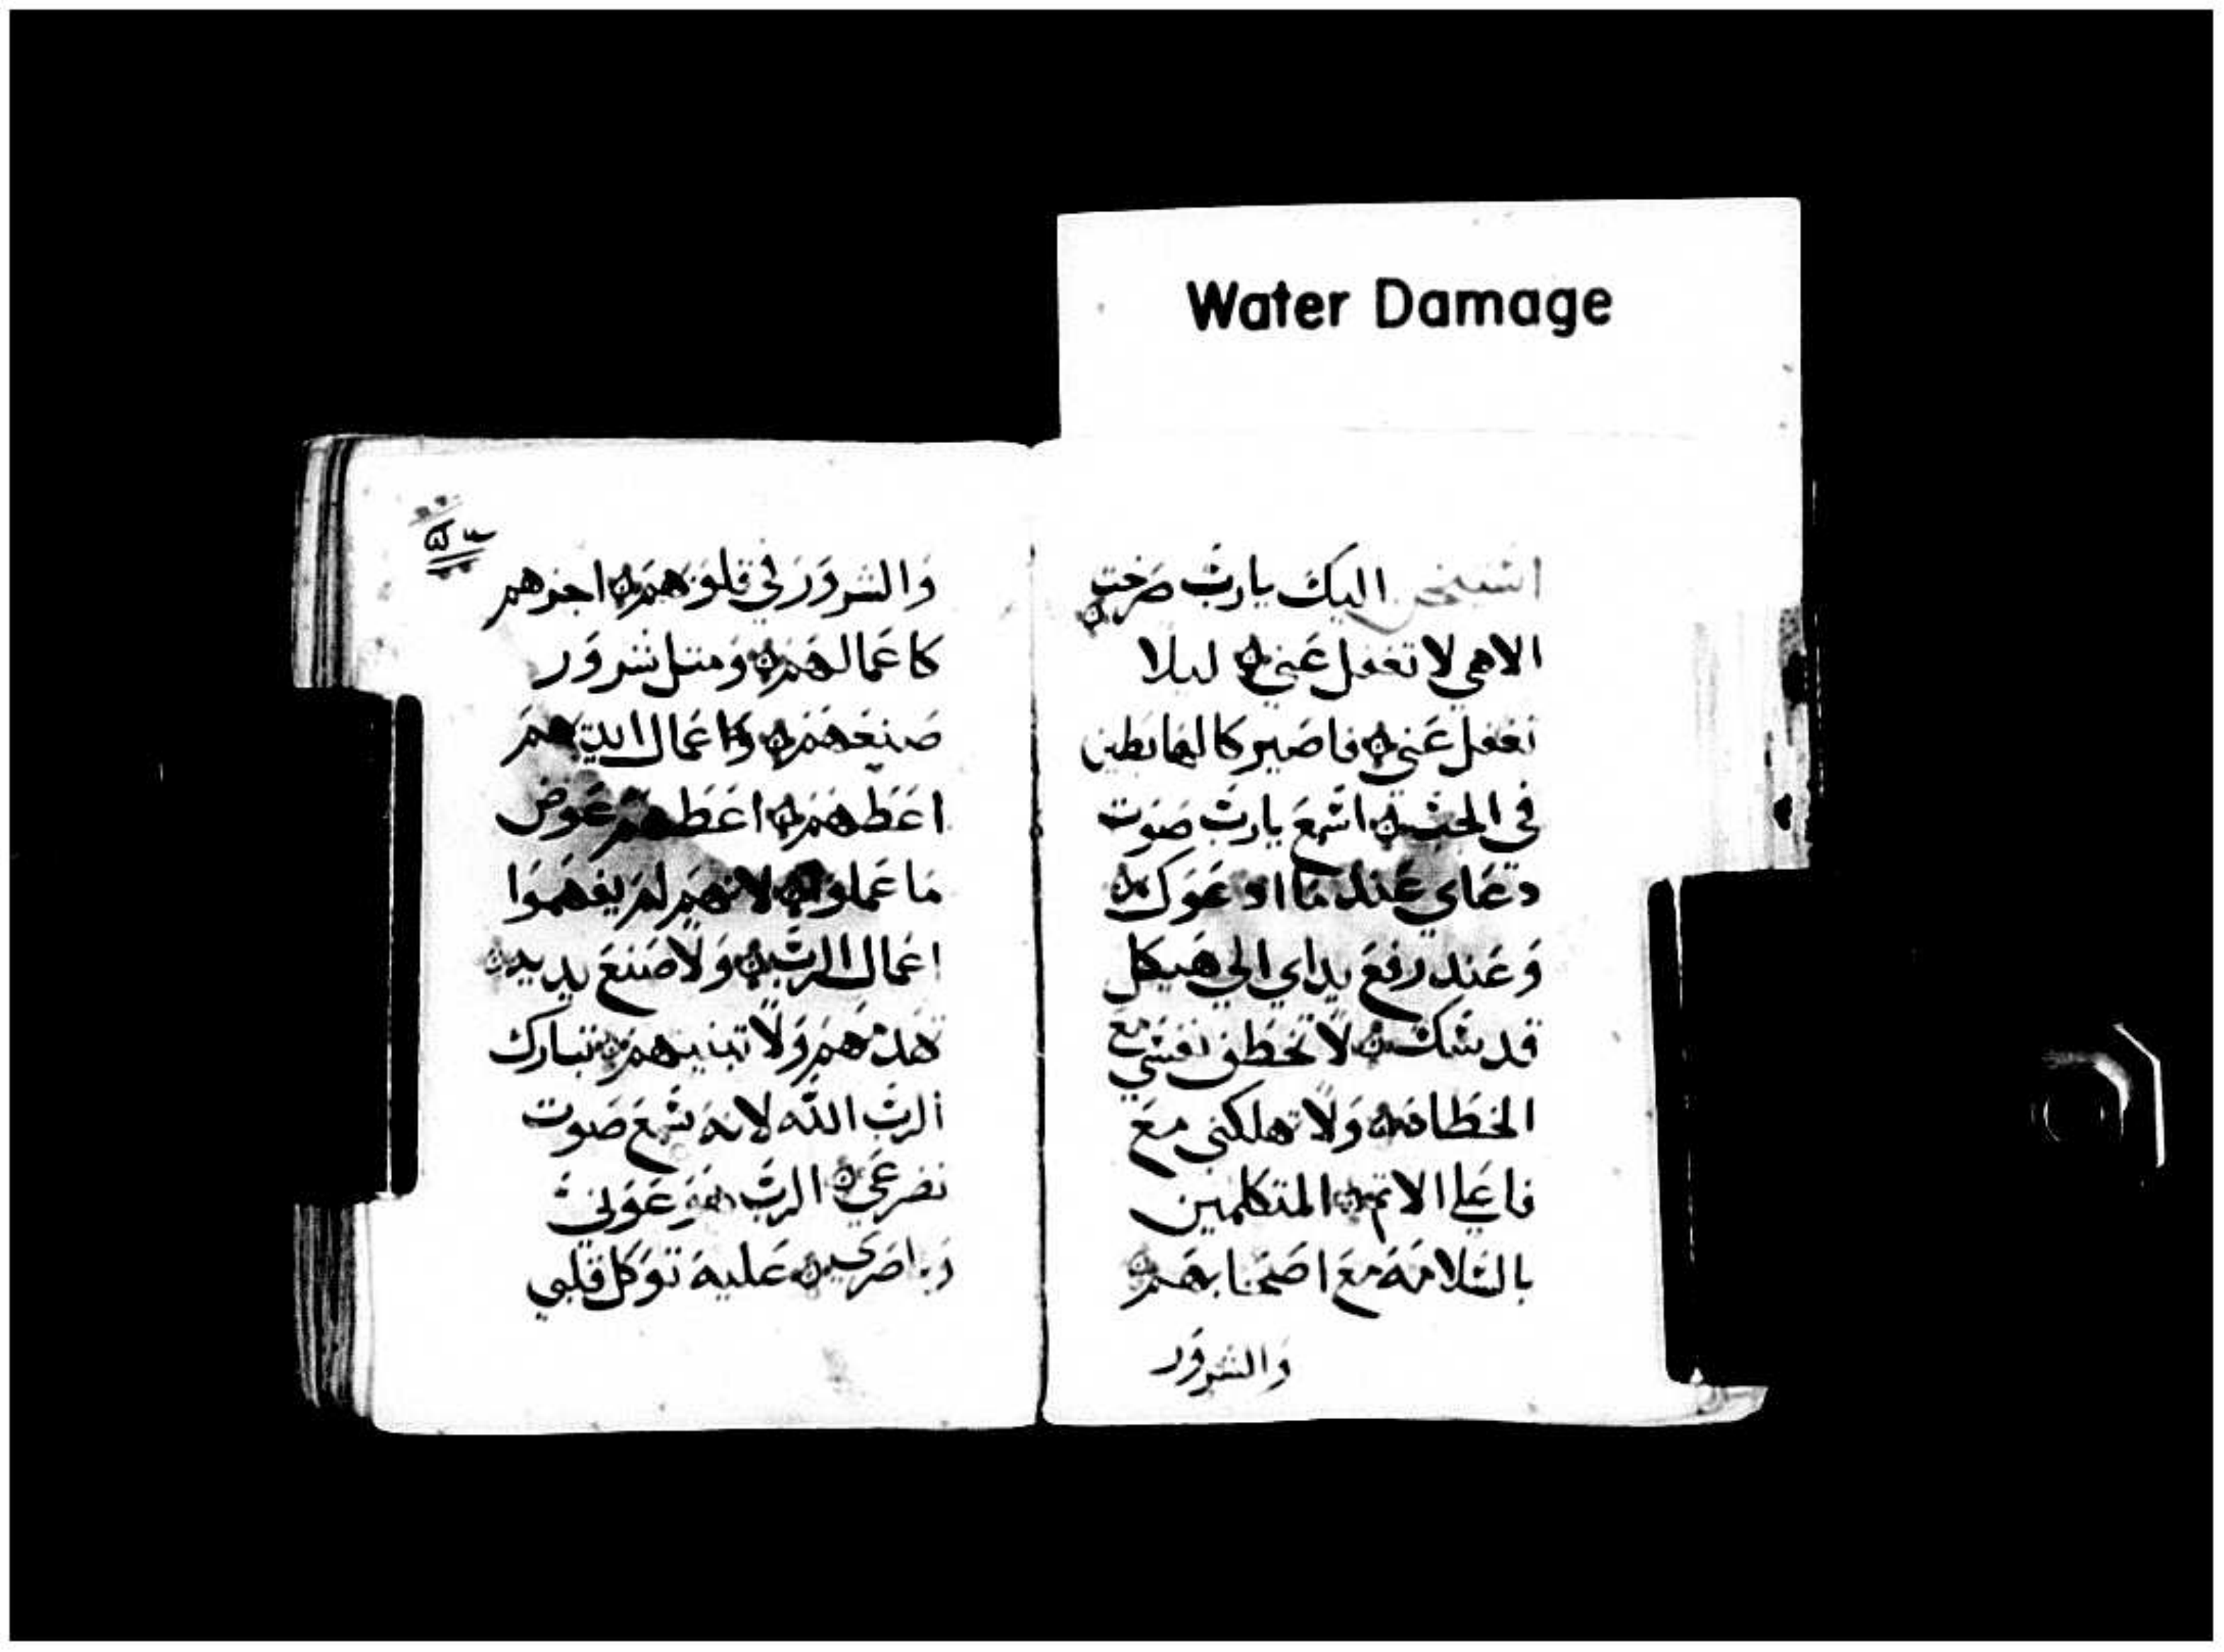 Water Damage
اليك يارب صرخت
الاهي لا تغفل عني ليلا
تغفل عني فاصير كالهابطين
في الجب اسمع يارب صوت
دعاي عند ما ادعوك
وعند رفع يداي الي هيكل
قدسك لا تخطف نفسي مع
الخطاه ولا تهلكني مع
فاعلي الاثم المتكلمين
بالسلامه مع اصحابهم
والشرور
والشرور في قلوبهم اجزهم
كاعمالهم ومثل شرور
صنيعهم وكاعمال ايديهم
اعطهم اعطهم عوض
ما عملوا لانهم لم يفهموا
اعمال الرب ولا صنع يديه
تهدمهم ولا تبنيهم تبارك
الرب الله لانه سمع صوت
تضرعي الرب هو عوني
وناصري عليه توكل قلبي